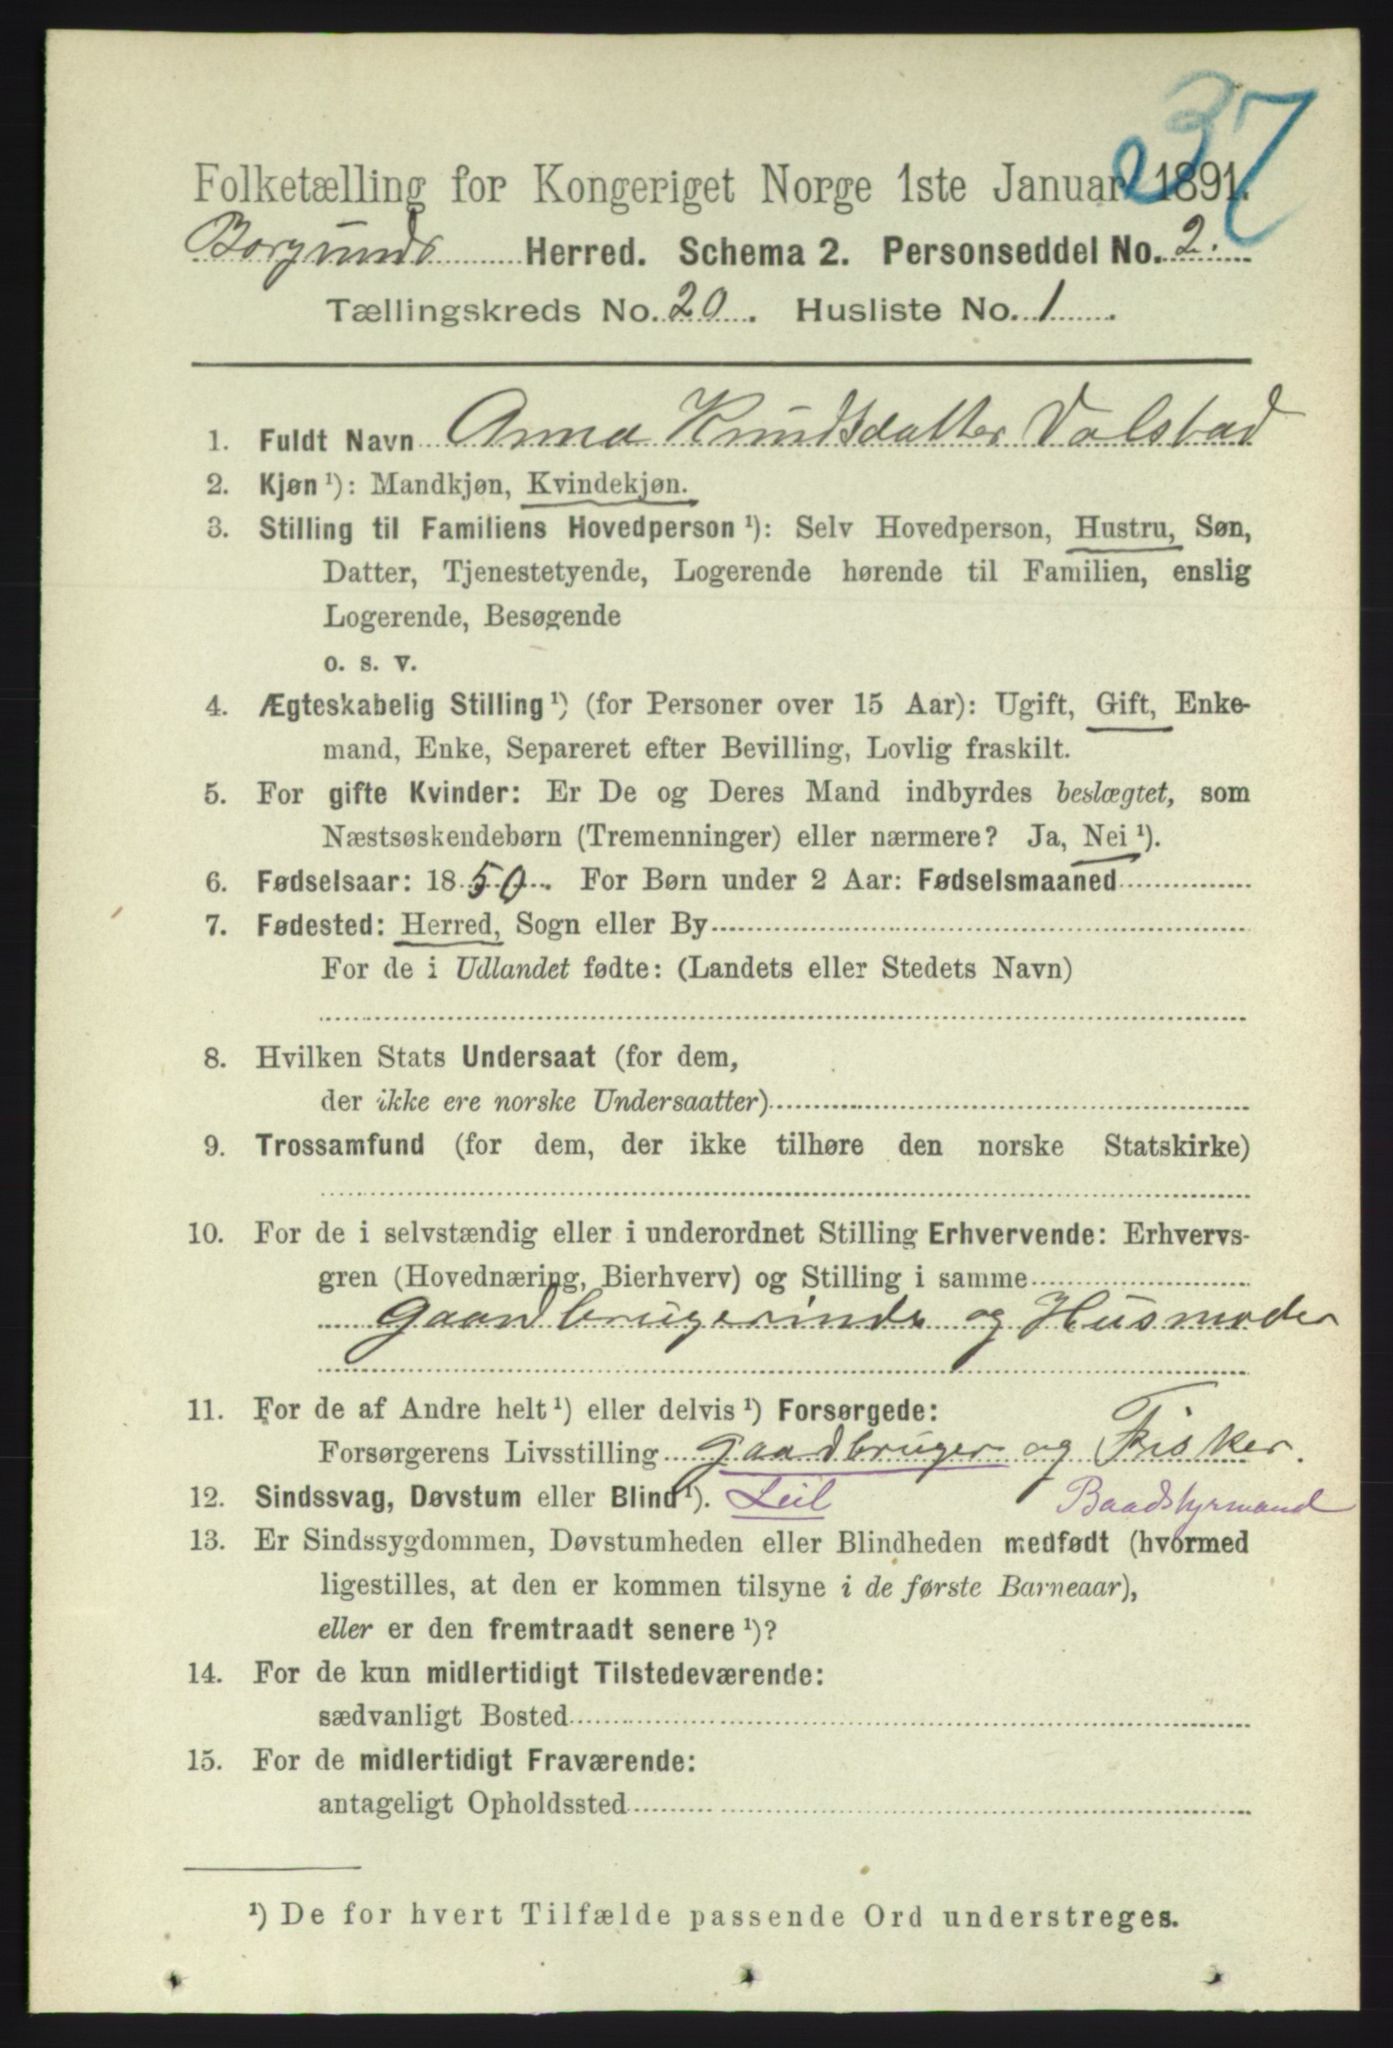 37
Folketælling for Kongeriget Norge 1ste Januar 1891.
Borgunds Herred. Schema 2. Personseddel No. 2.
Tællingskreds No. 20. Husliste No. 1.
1. Fuldt Navn Anna Knudsdatter Valsbad
2. Kjøn ¹): Mandkjøn, Kvindekjøn.
3. Stilling til Familiens Hovedperson ¹): Selv Hovedperson, Hustru, Søn,
Datter, Tjenestetyende, Logerende hørende til Familien, enslig
Logerende, Besøgende
o. s. v.
4. Ægteskabelig Stilling ¹) (for Personer over 15 Aar): Ugift, Gift, Enke-
mand, Enke, Separeret efter Bevilling, Lovlig fraskilt.
5. For gifte Kvinder: Er De og Deres Mand indbyrdes beslægtet, som
Næstsøskendebørn (Tremenninger) eller nærmere? Ja, Nei ¹).
6. Fødselsaar: 1850. For Børn under 2 Aar: Fødselsmaaned
7. Fødested: Herred, Sogn eller By
For de i Udlandet fødte: (Landets eller Stedets Navn)
8. Hvilken Stats Undersaat (for dem,
der ikke ere norske Undersaatter)
9. Trossamfund (for dem, der ikke tilhøre den norske Statskirke)
10. For de i selvstændig eller i underordnet Stilling Erhvervende: Erhvervs-
gren (Hovednæring, Bierhverv) og Stilling i samme
Gaardbrugerinde og Husmoder
11. For de af Andre helt ¹) eller delvis ¹) Forsørgede:
Forsørgerens Livsstilling gaardbruger og Fisker.
12. Sindssvag, Døvstum eller Blind ¹). Leil Baadstyrmand
13. Er Sindssygdommen, Døvstumheden eller Blindheden medfødt (hvormed
ligestilles, at den er kommen tilsyne i de første Barneaar),
eller er den fremtraadt senere ¹)?
14. For de kun midlertidigt Tilstedeværende:
sædvanligt Bosted
15. For de midlertidigt Fraværende:
antageligt Opholdssted
¹) De for hvert Tilfælde passende Ord understreges.